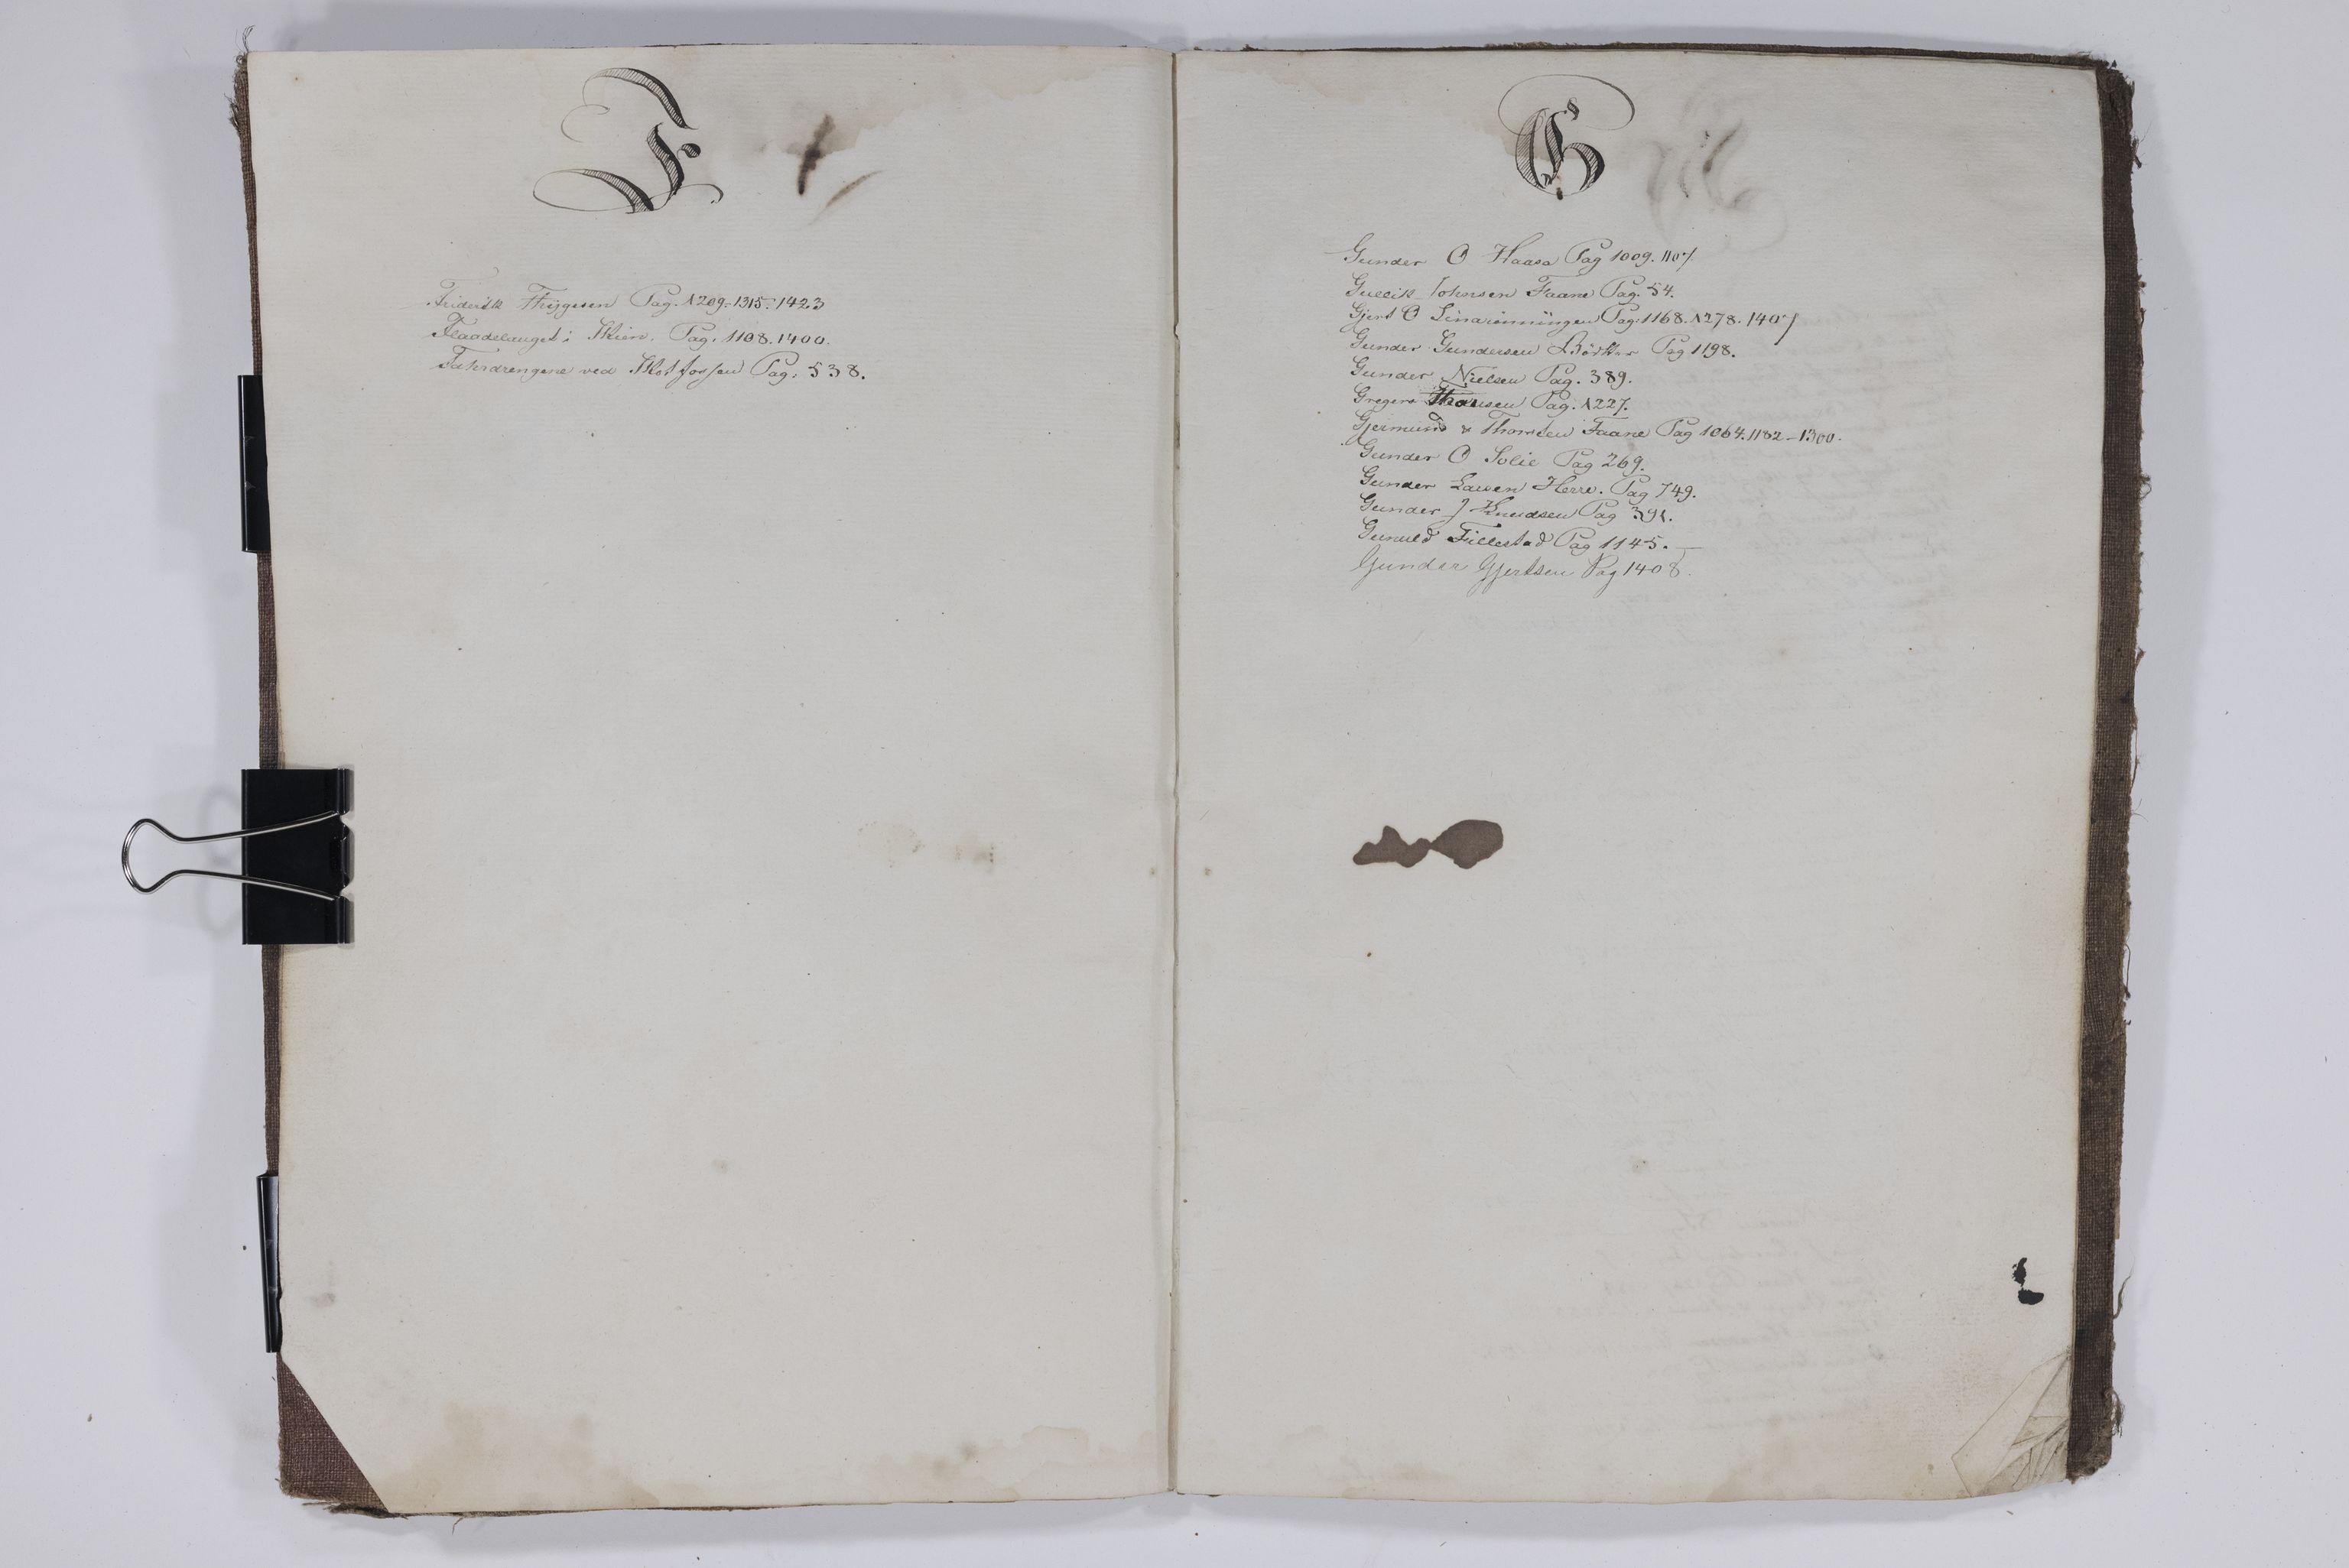 F
Friderik Thygesen Pag. 1209-1315-1423
Flaadelauget i Skien. Pag. 1108. 1400.
ved Skotfossen Pag. 538.
G
Gunder O Haasa Pag 1009. 1107
Gullik Johnsen Faane Pag. 54.
Gjert O Pag. 1168. 1278. 1407
Gunder Gundersen Pag 1198.
Gunder Nielsen Pag. 389.
Gregers Pag. 1227.
Gjermund & Thorsten Faane Pag 1064. 1182-1300.
Gunder O Solie Pag 269.
Gunder Larsen Herre. Pag 749.
Gunder J Knudsen Pag 391.
Gunuld Fillestad Pag 1145.
Gunder Gjertsen Pag 1408.